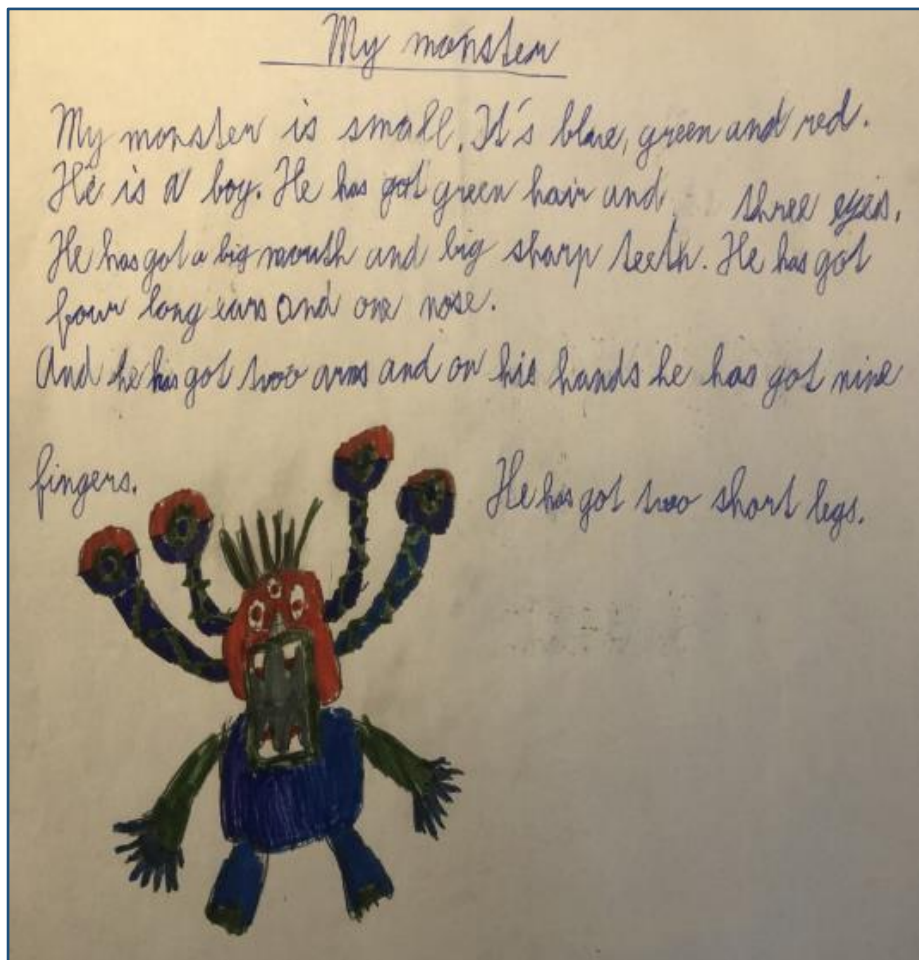 My monster
My monster is small. It's blue, green and red.
He is a boy. He has got green hair and three eyes.
He has got a big mouth and big sharp teeth. He has got
four long ears and one nose.
And he has got twoo arms and on his hands he has got nine
fingers. He has got twoo short legs.